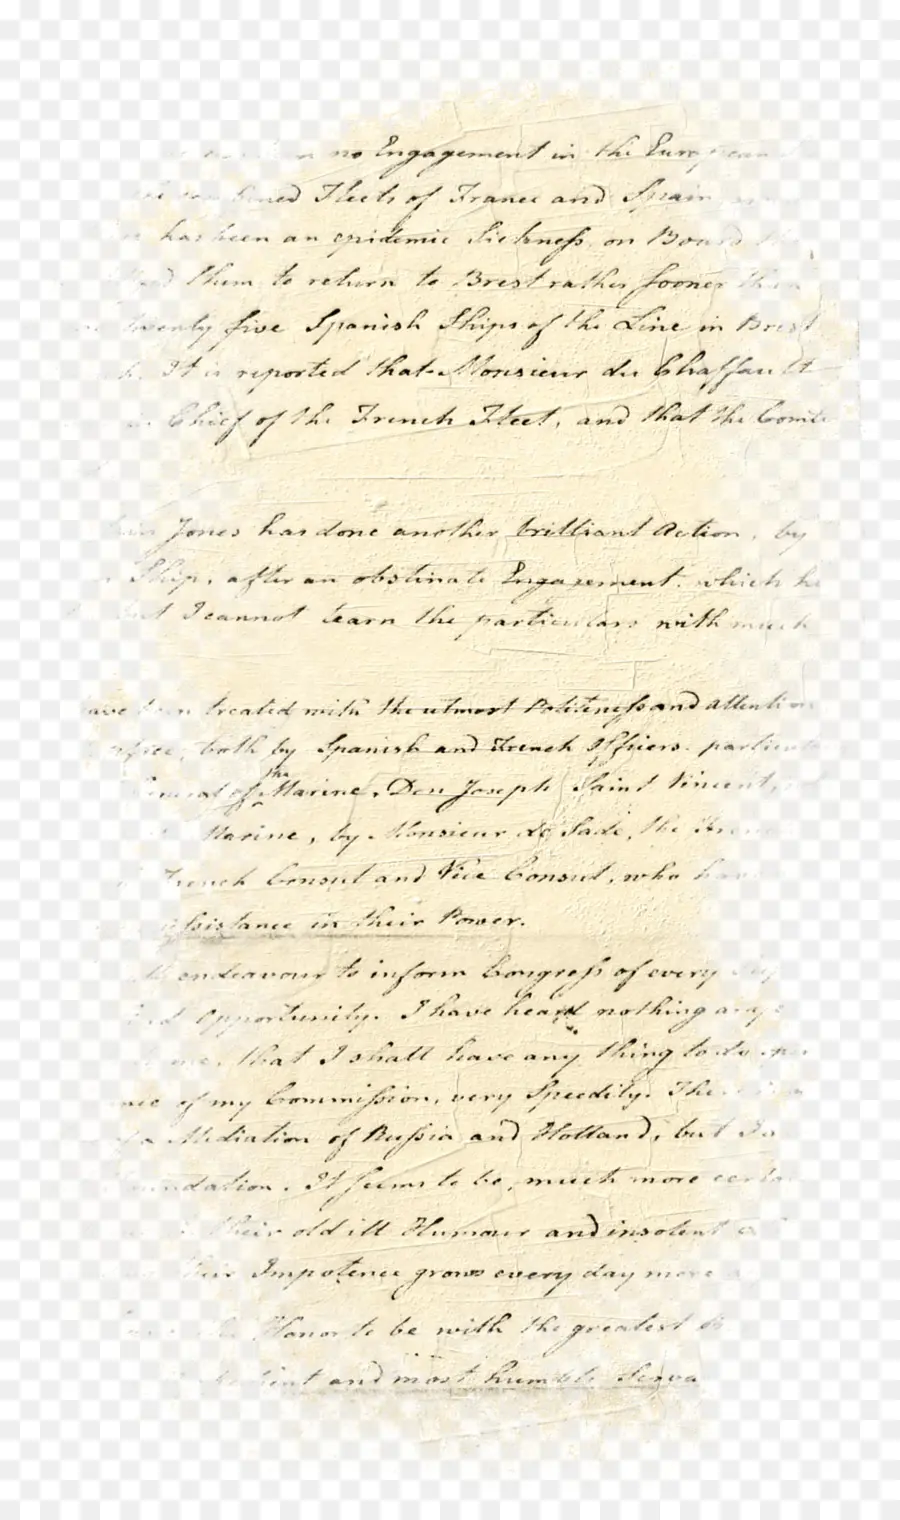 no Engagement in the European
Fleets of France and Spain
has been an epidemic Sickness, on Board
them to return to Brest rather sooner than
twenty five Spanish Ships of the Line in Brest
It is reported that Monsieur du Chaffault
Chief of the French Fleet, and that the Comte
Jones has done another brilliant Action, by
Ship, after an obstinate Engagement. which he
but I cannot learn the particulars with much
have been treated with the utmost Politeness and attention
both by Spanish and French Officers. particu
General of the Marine, Don Joseph Saint Vincent,
Marine, by Monsieur de Sade, the French
French Consul and Vice Consul, who have
assistance in their Power.
endeavour to inform Congress of every
Opportunity. I have heard nothing
that I shall have any thing to do
of my Commission, very Speedily. There is
of a Mediation of Russia and Holland, but
It seems to be, much more
their old ill Humour and insolent
their Impotence grows every day more
Honor to be with the greatest
and most humble Serva